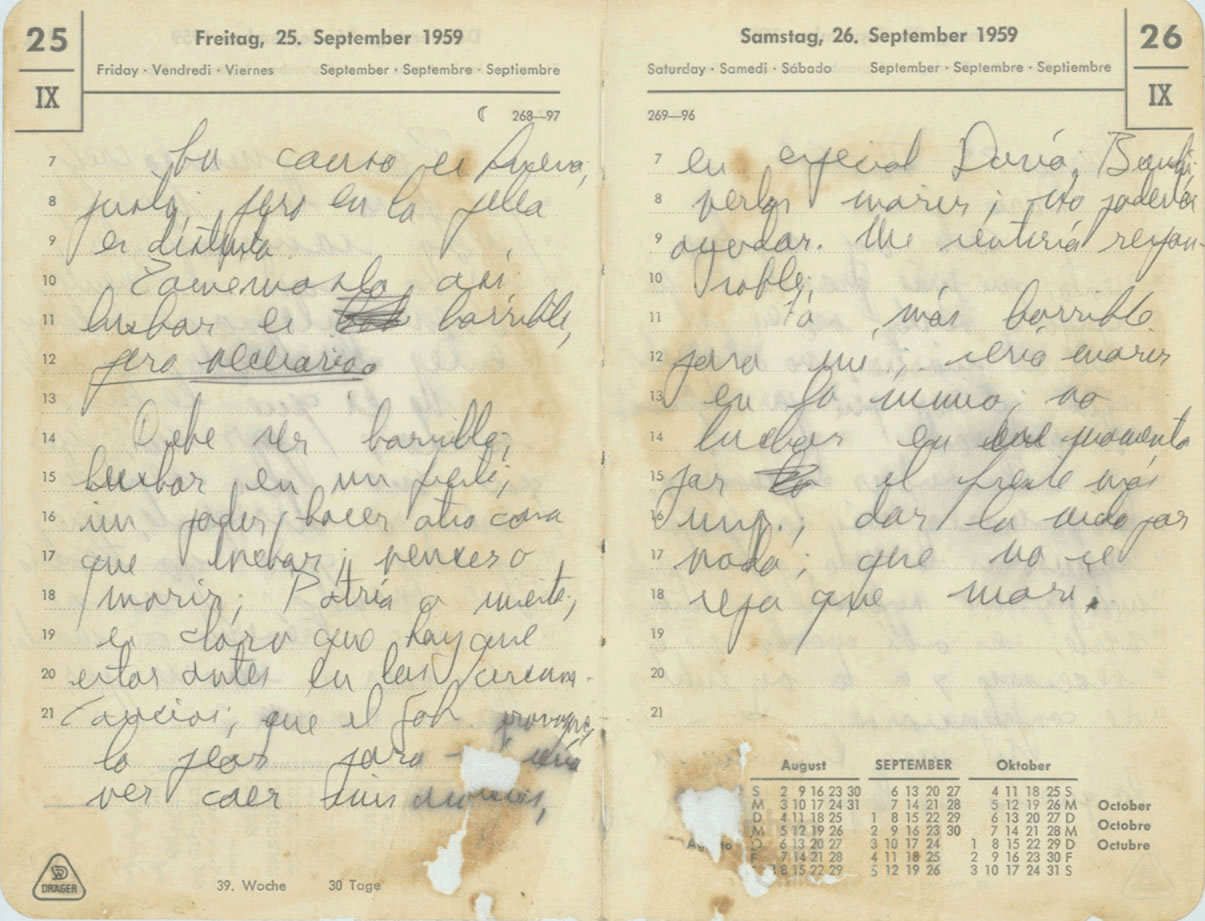 25
IX
Freitag, 25. September 1959
Friday · Vendredi · Viernes September · Septembre · Septiembre
268—97
7 Su causo es buena,
8 justa, pero en la pelea
9 es distinto.
10 Tomémoslo así
11 luchar es horrible,
12 pero necesario.
13
14 Debe ser horrible,
15 luchar en un
16 sin poder hacer otra cosa
17 que luchar; vencer o
18 morir; Patria o muerte,
19 es claro que hay que
20 estar antes en las circuns-
21 tancias, que el
lo peor para sería
ver caer mis
DRÄGER
39. Woche 30 Tage
26
IX
Samstag, 26. September 1959
Saturday · Samedi · Sábado September · Septembre · Septiembre
269—96
7 en especial
8 verlos morir; no poderlos
9 ayudar. Me sentiría respon-
10 sable;
11 Ya, más horrible
12 para mí, sería morir
13 en la mina; no
14 luchar en ese momento
15 por el frente más
16 dar la vida por
17 nada; que no se
18 sepa que morí.
19
20
21
August SEPTEMBER Oktober
S 2 9 16 23 30 6 13 20 27 4 11 18 25 S
M 3 10 17 24 31 7 14 21 28 5 12 19 26 M October
D 4 11 18 25 1 8 15 22 29 6 13 20 27 D
M 5 12 19 26 2 9 16 23 30 7 14 21 28 M Octobre
6 13 20 27 3 10 17 24 1 8 15 22 29 D Octubre
F 7 14 21 28 4 11 18 25 2 9 16 23 30 F
1 8 15 22 29 5 12 19 26 3 10 17 24 31 S